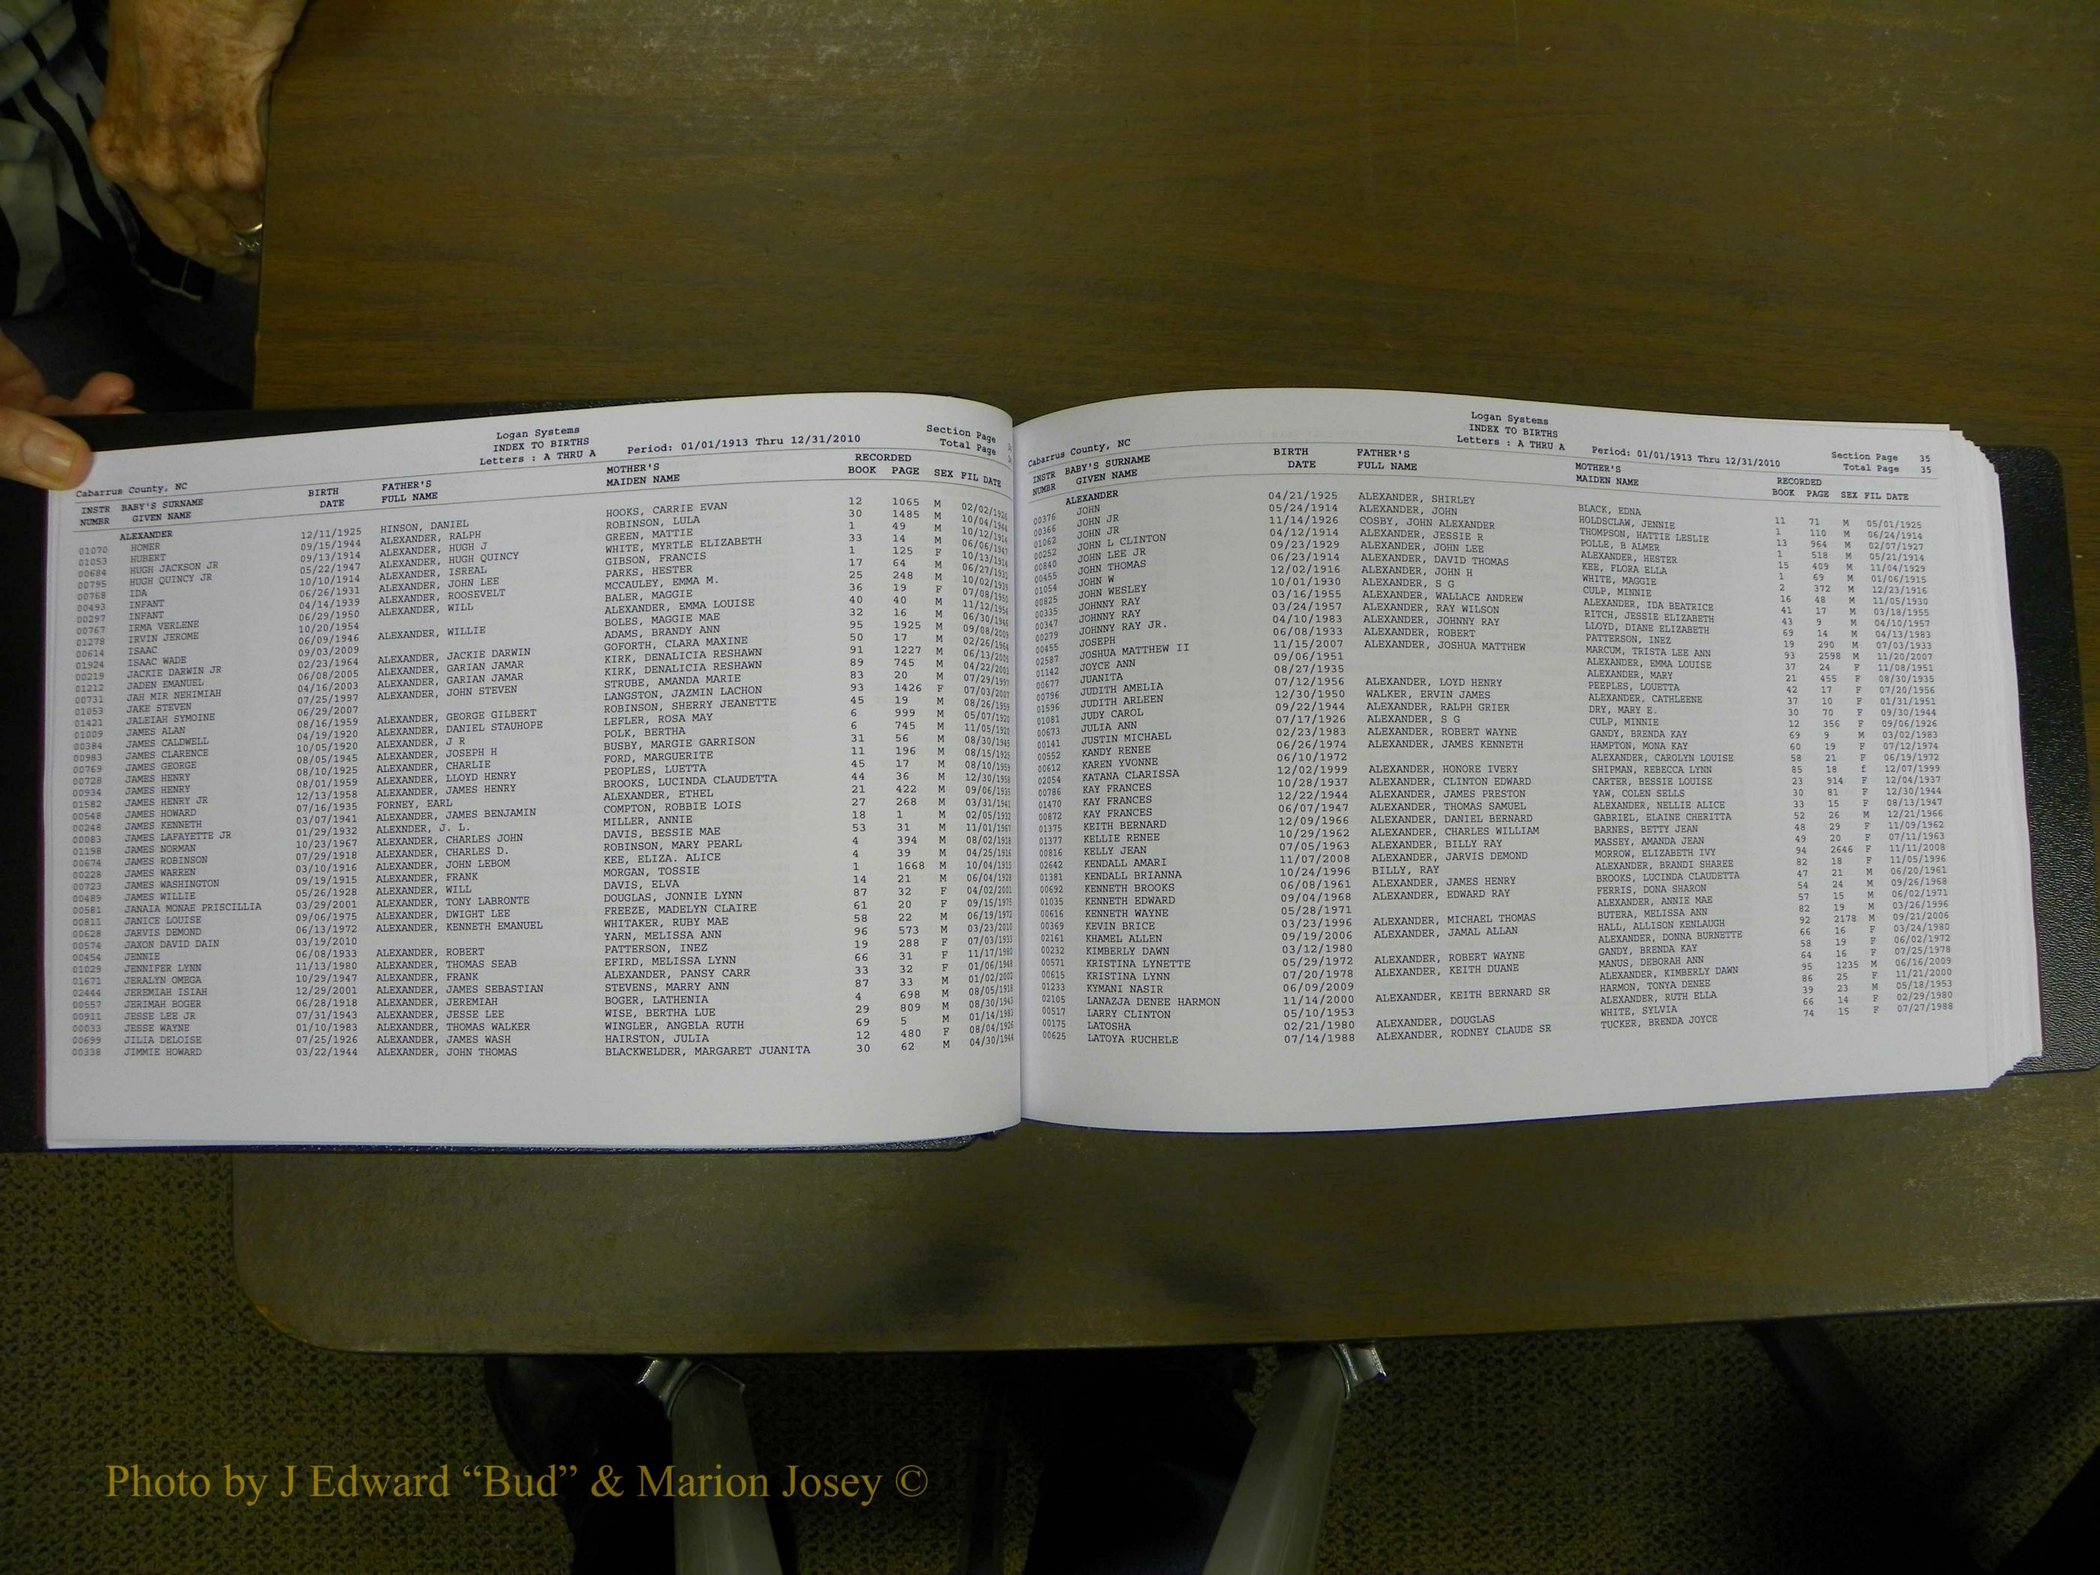 Logan Systems
INDEX TO BIRTHS
Letters : A THRU A Period: 01/01/1913 Thru 12/31/2010
Section Page
Total Page
Cabarrus County, NC
INSTR BABY'S SURNAME BIRTH FATHER'S MOTHER'S RECORDED
NUMBR GIVEN NAME DATE FULL NAME MAIDEN NAME BOOK PAGE SEX FIL DATE
ALEXANDER
01070 HOMER 12/11/1925 HINSON, DANIEL HOOKS, CARRIE EVAN 12 1065 M 02/02/1926
01053 HUBERT 09/15/1944 ALEXANDER, RALPH ROBINSON, LULA 30 1485 M 10/04/1944
00684 HUGH JACKSON JR 09/13/1914 ALEXANDER, HUGH J GREEN, MATTIE 1 49 M 10/12/1914
00795 HUGH QUINCY JR 05/22/1947 ALEXANDER, HUGH QUINCY WHITE, MYRTLE ELIZABETH 33 14 M 06/06/1947
00768 IDA 10/10/1914 ALEXANDER, ISREAL GIBSON, FRANCIS 1 125 F 10/13/1914
00493 INFANT 06/26/1931 ALEXANDER, JOHN LEE PARKS, HESTER 17 64 M 06/27/1931
00297 INFANT 04/14/1939 ALEXANDER, ROOSEVELT MCCAULEY, EMMA M. 25 248 M 10/02/1939
00767 IRMA VERLENE 06/29/1950 ALEXANDER, WILL BALER, MAGGIE 36 19 F 07/08/1950
01278 IRVIN JEROME 10/20/1954 ALEXANDER, EMMA LOUISE 40 40 M 11/12/1954
00614 ISAAC 06/09/1946 ALEXANDER, WILLIE BOLES, MAGGIE MAE 32 16 M 06/30/1946
01924 ISAAC WADE 09/03/2009 ADAMS, BRANDY ANN 95 1925 M 09/08/2009
00219 JACKIE DARWIN JR 02/23/1964 ALEXANDER, JACKIE DARWIN GOFORTH, CLARA MAXINE 50 17 M 02/26/1964
01212 JADEN EMANUEL 06/08/2005 ALEXANDER, GARIAN JAMAR KIRK, DENALICIA RESHAWN 91 1227 M 06/13/2005
00731 JAH MIR NEHIMIAH 04/16/2003 ALEXANDER, GARIAN JAMAR KIRK, DENALICIA RESHAWN 89 745 M 04/22/2003
01053 JAKE STEVEN 07/25/1997 ALEXANDER, JOHN STEVEN STRUBE, AMANDA MARIE 83 20 M 07/29/1997
01421 JALEIAH SYMOINE 06/29/2007 LANGSTON, JAZMIN LACHON 93 1426 F 07/03/2007
01009 JAMES ALAN 08/16/1959 ALEXANDER, GEORGE GILBERT ROBINSON, SHERRY JEANETTE 45 19 M 08/26/1959
00384 JAMES CALDWELL 04/19/1920 ALEXANDER, DANIEL STAUHOPE LEFLER, ROSA MAY 6 999 M 05/07/1920
00983 JAMES CLARENCE 10/05/1920 ALEXANDER, J R POLK, BERTHA 6 745 M 11/05/1920
00769 JAMES GEORGE 08/05/1945 ALEXANDER, JOSEPH H BUSBY, MARGIE GARRISON 31 56 M 08/30/1945
00728 JAMES HENRY 08/10/1925 ALEXANDER, CHARLIE FORD, MARGUERITE 11 196 M 08/15/1925
00934 JAMES HENRY 08/01/1959 ALEXANDER, LLOYD HENRY PEOPLES, LUETTA 45 17 M 08/10/1959
01582 JAMES HENRY JR 12/13/1958 ALEXANDER, JAMES HENRY BROOKS, LUCINDA CLAUDETTA 44 36 M 12/30/1958
00548 JAMES HOWARD 07/16/1935 FORNEY, EARL ALEXANDER, ETHEL 21 422 M 09/06/1935
00248 JAMES KENNETH 03/07/1941 ALEXANDER, JAMES BENJAMIN COMPTON, ROBBIE LOIS 27 268 M 03/31/1941
00083 JAMES LAFAYETTE JR 01/29/1932 ALEXNDER, J. L. MILLER, ANNIE 18 1 M 02/05/1932
01198 JAMES NORMAN 10/23/1967 ALEXANDER, CHARLES JOHN DAVIS, BESSIE MAE 53 31 M 11/01/1967
00674 JAMES ROBINSON 07/29/1918 ALEXANDER, CHARLES D. ROBINSON, MARY PEARL 4 394 M 08/02/1918
00228 JAMES WARREN 03/10/1916 ALEXANDER, JOHN LEBOM KEE, ELIZA. ALICE 4 39 M 04/25/1916
00723 JAMES WASHINGTON 09/19/1915 ALEXANDER, FRANK MORGAN, TOSSIE 1 1668 M 10/04/1915
00489 JAMES WILLIE 05/26/1928 ALEXANDER, WILL DAVIS, ELVA 14 21 M 06/04/1928
00581 JANAIA MONAE PRISCILLIA 03/29/2001 ALEXANDER, TONY LABRONTE DOUGLAS, JONNIE LYNN 87 32 F 04/02/2001
00811 JANICE LOUISE 09/06/1975 ALEXANDER, DWIGHT LEE FREEZE, MADELYN CLAIRE 61 20 F 09/15/1975
00628 JARVIS DEMOND 06/13/1972 ALEXANDER, KENNETH EMANUEL WHITAKER, RUBY MAE 58 22 M 06/19/1972
00574 JAXON DAVID DAIN 03/19/2010 YARN, MELISSA ANN 96 573 M 03/23/2010
00454 JENNIE 06/08/1933 ALEXANDER, ROBERT PATTERSON, INEZ 19 288 F 07/03/1933
01029 JENNIFER LYNN 11/13/1980 ALEXANDER, THOMAS SEAB EFIRD, MELISSA LYNN 66 31 F 11/17/1980
01671 JERALYN OMEGA 10/29/1947 ALEXANDER, FRANK ALEXANDER, PANSY CARR 33 32 F 01/06/1948
02444 JEREMIAH ISIAH 12/29/2001 ALEXANDER, JAMES SEBASTIAN STEVENS, MARRY ANN 87 33 M 01/02/2002
00557 JERIMAH BOGER 06/28/1918 ALEXANDER, JEREMIAH BOGER, LATHENIA 4 698 M 08/05/1918
00911 JESSE LEE JR 07/31/1943 ALEXANDER, JESSE LEE WISE, BERTHA LUE 29 809 M 08/30/1943
00033 JESSE WAYNE 01/10/1983 ALEXANDER, THOMAS WALKER WINGLER, ANGELA RUTH 69 5 M 01/14/1983
00699 JILIA DELOISE 07/25/1926 ALEXANDER, JAMES WASH HAIRSTON, JULIA 12 480 F 08/04/1926
00338 JIMMIE HOWARD 03/22/1944 ALEXANDER, JOHN THOMAS BLACKWELDER, MARGARET JUANITA 30 62 M 04/30/1944
Logan Systems
INDEX TO BIRTHS
Letters : A THRU A Period: 01/01/1913 Thru 12/31/2010
Section Page 35
Total Page 35
Cabarrus County, NC
INSTR BABY'S SURNAME BIRTH FATHER'S MOTHER'S RECORDED
NUMBR GIVEN NAME DATE FULL NAME MAIDEN NAME BOOK PAGE SEX FIL DATE
ALEXANDER
00376 JOHN 04/21/1925 ALEXANDER, SHIRLEY BLACK, EDNA 11 71 M 05/01/1925
00366 JOHN JR 05/24/1914 ALEXANDER, JOHN HOLDSCLAW, JENNIE 1 110 M 06/24/1914
01062 JOHN JR 11/14/1926 COSBY, JOHN ALEXANDER THOMPSON, HATTIE LESLIE 13 964 M 02/07/1927
00252 JOHN L CLINTON 04/12/1914 ALEXANDER, JESSIE R POLLE, B ALMER 1 518 M 05/21/1914
00840 JOHN LEE JR 09/23/1929 ALEXANDER, JOHN LEE ALEXANDER, HESTER 15 409 M 11/04/1929
00455 JOHN THOMAS 06/23/1914 ALEXANDER, DAVID THOMAS KEE, FLORA ELLA 1 69 M 01/06/1915
01054 JOHN W 12/02/1916 ALEXANDER, JOHN H WHITE, MAGGIE 2 372 M 12/23/1916
00825 JOHN WESLEY 10/01/1930 ALEXANDER, S G CULP, MINNIE 16 48 M 11/05/1930
00335 JOHNNY RAY 03/16/1955 ALEXANDER, WALLACE ANDREW ALEXANDER, IDA BEATRICE 41 17 M 03/18/1955
00347 JOHNNY RAY 03/24/1957 ALEXANDER, RAY WILSON RITCH, JESSIE ELIZABETH 43 9 M 04/10/1957
00279 JOHNNY RAY JR. 04/10/1983 ALEXANDER, JOHNNY RAY LLOYD, DIANE ELIZABETH 69 14 M 04/13/1983
00455 JOSEPH 06/08/1933 ALEXANDER, ROBERT PATTERSON, INEZ 19 290 M 07/03/1933
02587 JOSHUA MATTHEW II 11/15/2007 ALEXANDER, JOSHUA MATTHEW MARCUM, TRISTA LEE ANN 93 2598 M 11/20/2007
01142 JOYCE ANN 09/06/1951 ALEXANDER, EMMA LOUISE 37 24 F 11/08/1951
00677 JUANITA 08/27/1935 ALEXANDER, MARY 21 455 F 08/30/1935
00796 JUDITH AMELIA 07/12/1956 ALEXANDER, LOYD HENRY PEEPLES, LOUETTA 42 17 F 07/20/1956
01596 JUDITH ARLEEN 12/30/1950 WALKER, ERVIN JAMES ALEXANDER, CATHLEENE 37 10 F 01/31/1951
01081 JUDY CAROL 09/22/1944 ALEXANDER, RALPH GRIER DRY, MARY E. 30 70 F 09/30/1944
00673 JULIA ANN 07/17/1926 ALEXANDER, S G CULP, MINNIE 12 356 F 09/06/1926
00141 JUSTIN MICHAEL 02/23/1983 ALEXANDER, ROBERT WAYNE GANDY, BRENDA KAY 69 9 M 03/02/1983
00552 KANDY RENEE 06/26/1974 ALEXANDER, JAMES KENNETH HAMPTON, MONA KAY 60 19 F 07/12/1974
00612 KAREN YVONNE 06/10/1972 ALEXANDER, CAROLYN LOUISE 58 21 F 06/19/1972
02054 KATANA CLARISSA 12/02/1999 ALEXANDER, HONORE IVERY SHIPMAN, REBECCA LYNN 85 18 f 12/07/1999
00786 KAY FRANCES 10/28/1937 ALEXANDER, CLINTON EDWARD CARTER, BESSIE LOUISE 23 914 F 12/04/1937
01470 KAY FRANCES 12/22/1944 ALEXANDER, JAMES PRESTON YAW, COLEN SELLS 30 81 F 12/30/1944
00872 KAY FRANCES 06/07/1947 ALEXANDER, THOMAS SAMUEL ALEXANDER, NELLIE ALICE 33 15 F 08/13/1947
01375 KEITH BERNARD 12/09/1966 ALEXANDER, DANIEL BERNARD GABRIEL, ELAINE CHERITTA 52 26 M 12/21/1966
01377 KELLIE RENEE 10/29/1962 ALEXANDER, CHARLES WILLIAM BARNES, BETTY JEAN 48 29 F 11/09/1962
00816 KELLY JEAN 07/05/1963 ALEXANDER, BILLY RAY MASSEY, AMANDA JEAN 49 20 F 07/11/1963
02642 KENDALL AMARI 11/07/2008 ALEXANDER, JARVIS DEMOND MORROW, ELIZABETH IVY 94 2646 F 11/11/2008
01381 KENDALL BRIANNA 10/24/1996 BILLY, RAY ALEXANDER, BRANDI SHAREE 82 18 F 11/05/1996
00692 KENNETH BROOKS 06/08/1961 ALEXANDER, JAMES HENRY BROOKS, LUCINDA CLAUDETTA 47 21 M 06/20/1961
01035 KENNETH EDWARD 09/04/1968 ALEXANDER, EDWARD RAY FERRIS, DONA SHARON 54 24 M 09/26/1968
00616 KENNETH WAYNE 05/28/1971 ALEXANDER, ANNIE MAE 57 15 M 06/02/1971
00369 KEVIN BRICE 03/23/1996 ALEXANDER, MICHAEL THOMAS BUTERA, MELISSA ANN 82 19 M 03/26/1996
02161 KHAMEL ALLEN 09/19/2006 ALEXANDER, JAMAL ALLAN HALL, ALLISON KENLAUGH 92 2178 M 09/21/2006
00232 KIMBERLY DAWN 03/12/1980 ALEXANDER, DONNA BURNETTE 66 16 F 03/24/1980
00571 KRISTINA LYNETTE 05/29/1972 ALEXANDER, ROBERT WAYNE GANDY, BRENDA KAY 58 19 F 06/02/1972
00615 KRISTINA LYNN 07/20/1978 ALEXANDER, KEITH DUANE MANUS, DEBORAH ANN 64 16 F 07/25/1978
01233 KYMANI NASIR 06/09/2009 ALEXANDER, KIMBERLY DAWN 95 1235 M 06/16/2009
02105 LANAZJA DENEE HARMON 11/14/2000 ALEXANDER, KEITH BERNARD SR HARMON, TONYA DENEE 86 25 F 11/21/2000
00517 LARRY CLINTON 05/10/1953 ALEXANDER, RUTH ELLA 39 23 M 05/18/1953
00175 LATOSHA 02/21/1980 ALEXANDER, DOUGLAS WHITE, SYLVIA 66 14 F 02/29/1980
00625 LATOYA RUCHELE 07/14/1988 ALEXANDER, RODNEY CLAUDE SR TUCKER, BRENDA JOYCE 74 15 F 07/27/1988
Photo by J Edward “Bud” & Marion Josey ©